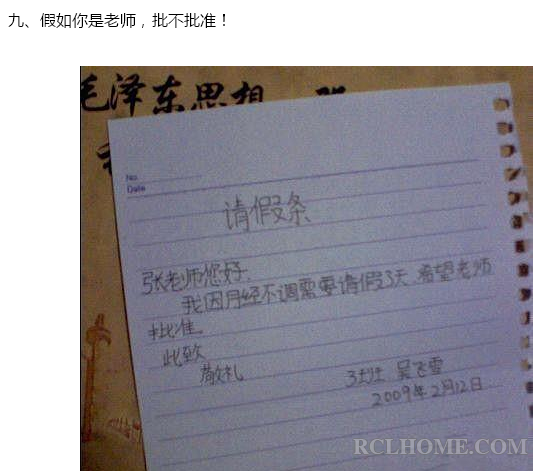 九、假如你是老师，批不批准！
毛泽东思想
No.
Date
请假条
张老师您好.
我因月经不调需要请假3天.希望老师
批准.
此致
敬礼
3班 吴飞雪
2009年2月12日
RCLHOME.COM